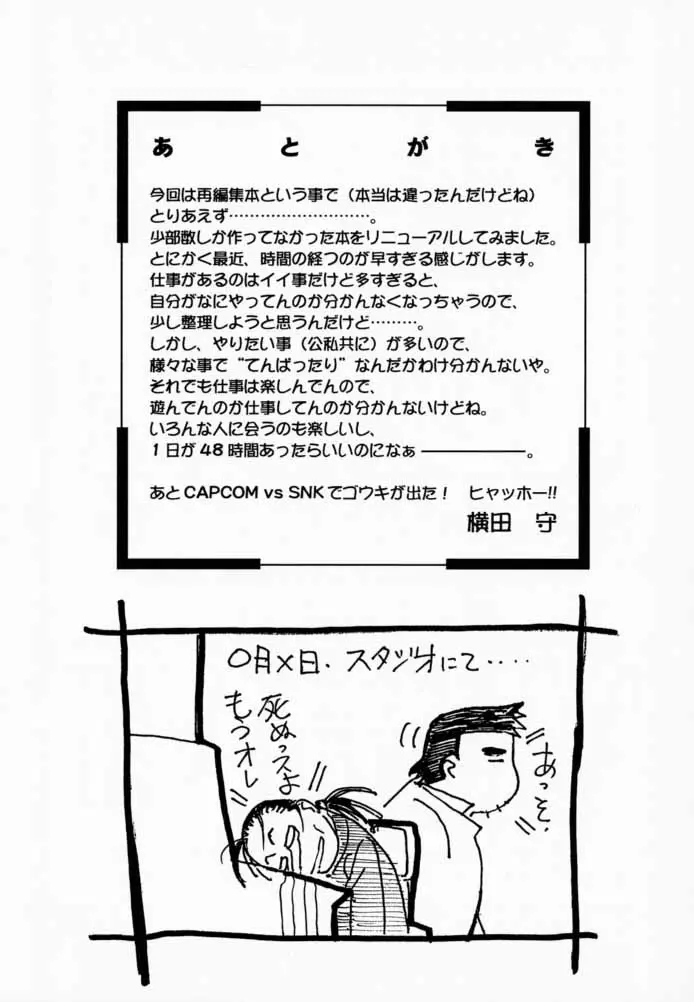 あとがき
今回は再編集本という事で（本当は違ったんだけどね）
とりあえず………………………。
少部数しか作ってなかった本をリニューアルしてみました。
とにかく最近、時間の経つのが早すぎる感じがします。
仕事があるのはイイ事だけど多すぎると、
自分がなにやってんのか分かんなくなっちゃうので、
少し整理しようと思うんだけど………。
しかし、やりたい事（公私共に）が多いので、
様々な事で“てんぱったり”なんだかわけ分かんないや。
それでも仕事は楽しんでんので、
遊んでんのか仕事してんのか分かんないけどね。
いろんな人に会うのも楽しいし、
１日が48時間あったらいいのになぁ――――――。
あとCAPCOM vs SNKでゴウキが出た！　ヒャッホー!!
横田　守
〇月×日．スタジオにて‥‥
死ぬっスよ
もうオレ
あっそ．